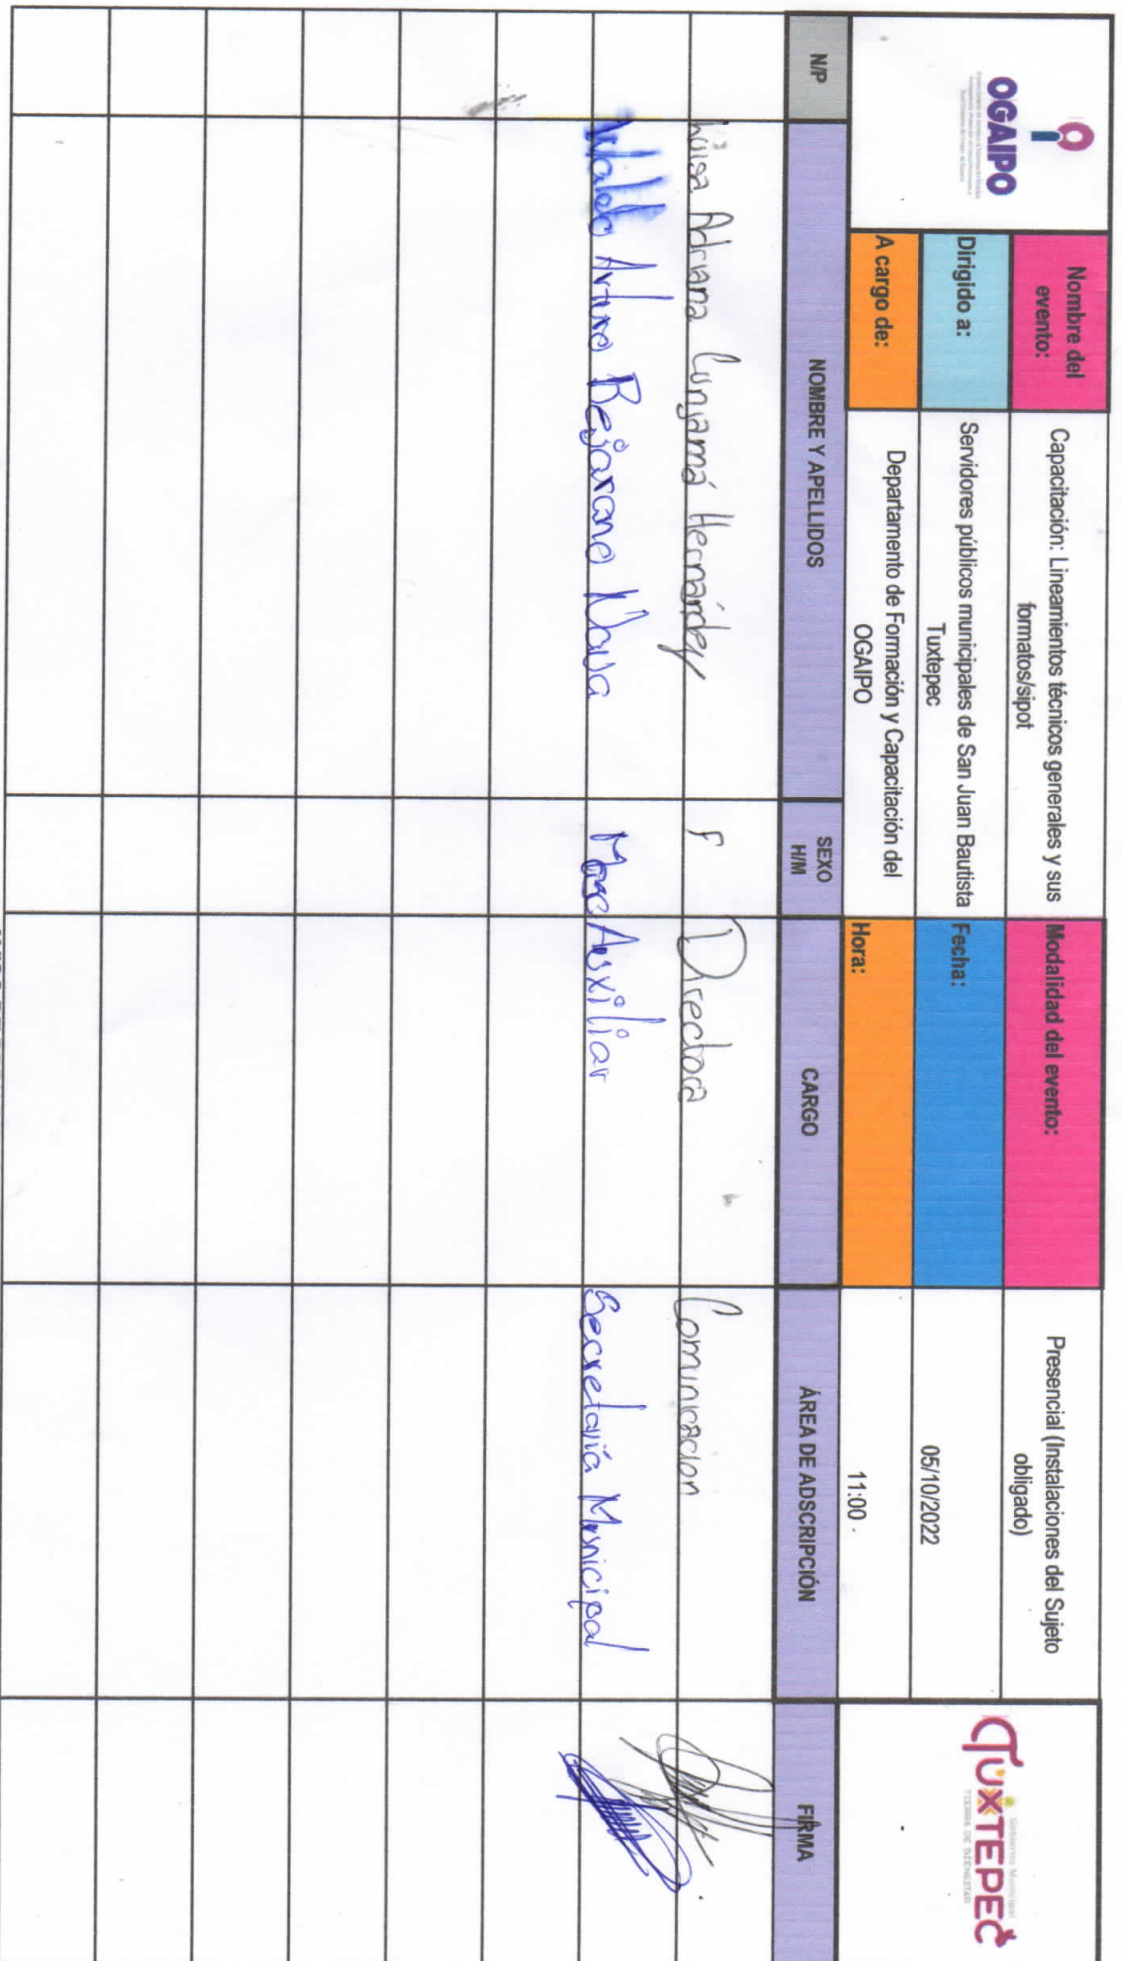 OGAIPO
Nombre del evento:
Capacitación: Lineamientos técnicos generales y sus formatos/sipot
Modalidad del evento:
Presencial (Instalaciones del Sujeto obligado)
Dirigido a:
Servidores públicos municipales de San Juan Bautista Tuxtepec
Fecha:
05/10/2022
A cargo de:
Departamento de Formación y Capacitación del OGAIPO
Hora:
11:00
Gobierno Municipal
TUXTEPEC
TIERRA DE BIENESTAR
N/P
NOMBRE Y APELLIDOS
SEXO H/M
CARGO
ÁREA DE ADSCRIPCIÓN
FIRMA
Luisa Adriana Hernández
F
Directora
Comunicacion
Waldo Arturo Bejarano Nava
Masc
Auxiliar
Secretaría Municipal